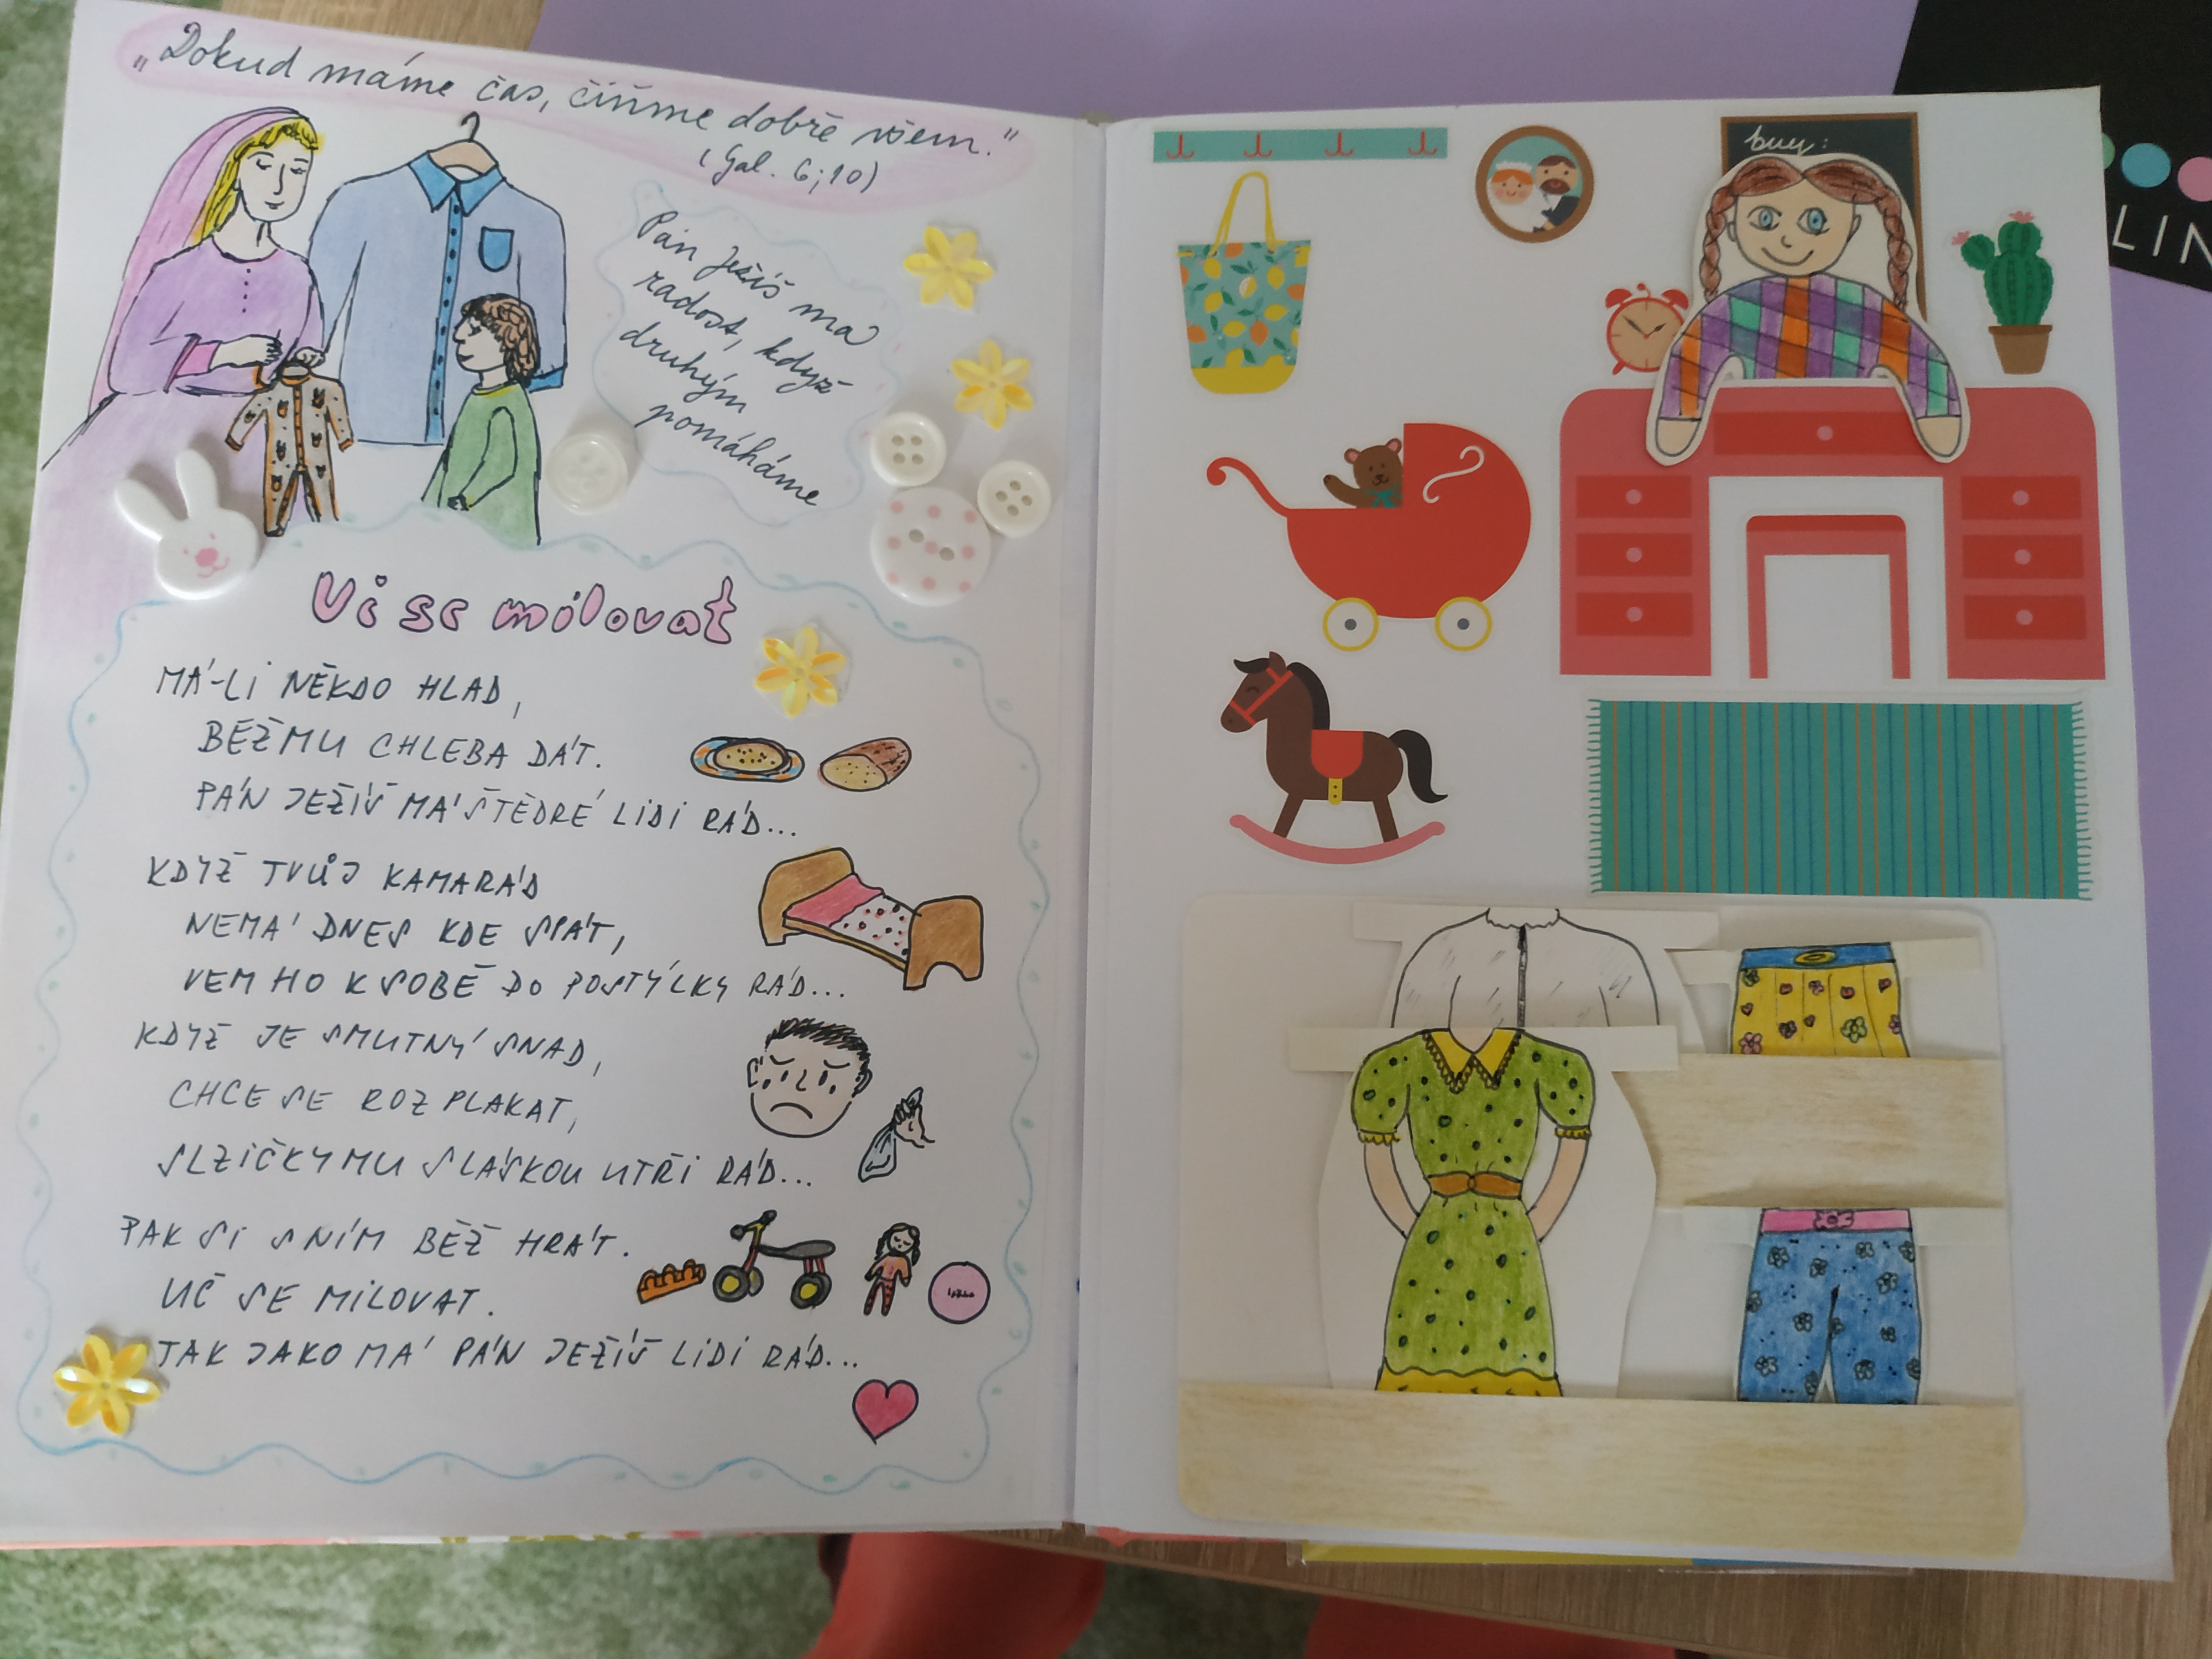 „Dokud máme čas, čiňme dobře všem."
(Gal. 6;10)
Pán Ježíš má
radost, když
druhým
pomáháme
Uč se milovat
MÁ-LI NĚKDO HLAD,
BĚŽ MU CHLEBA DÁT.
PÁN JEŽÍŠ MÁ ŠTĚDRÉ LIDI RÁD...
KDYŽ TVŮJ KAMARÁD
NEMÁ DNES KDE SPÁT,
VEM HO K SOBĚ DO POSTÝLKY RÁD...
KDYŽ JE SMUTNÝ SNAD,
CHCE SE ROZPLAKAT,
SLZIČKY MU S LÁSKOU UTŘI RÁD...
PAK SI S NÍM BĚŽ HRÁT.
UČ SE MILOVAT.
TAK JAKO MÁ PÁN JEŽÍŠ LIDI RÁD...
buy:
LIN